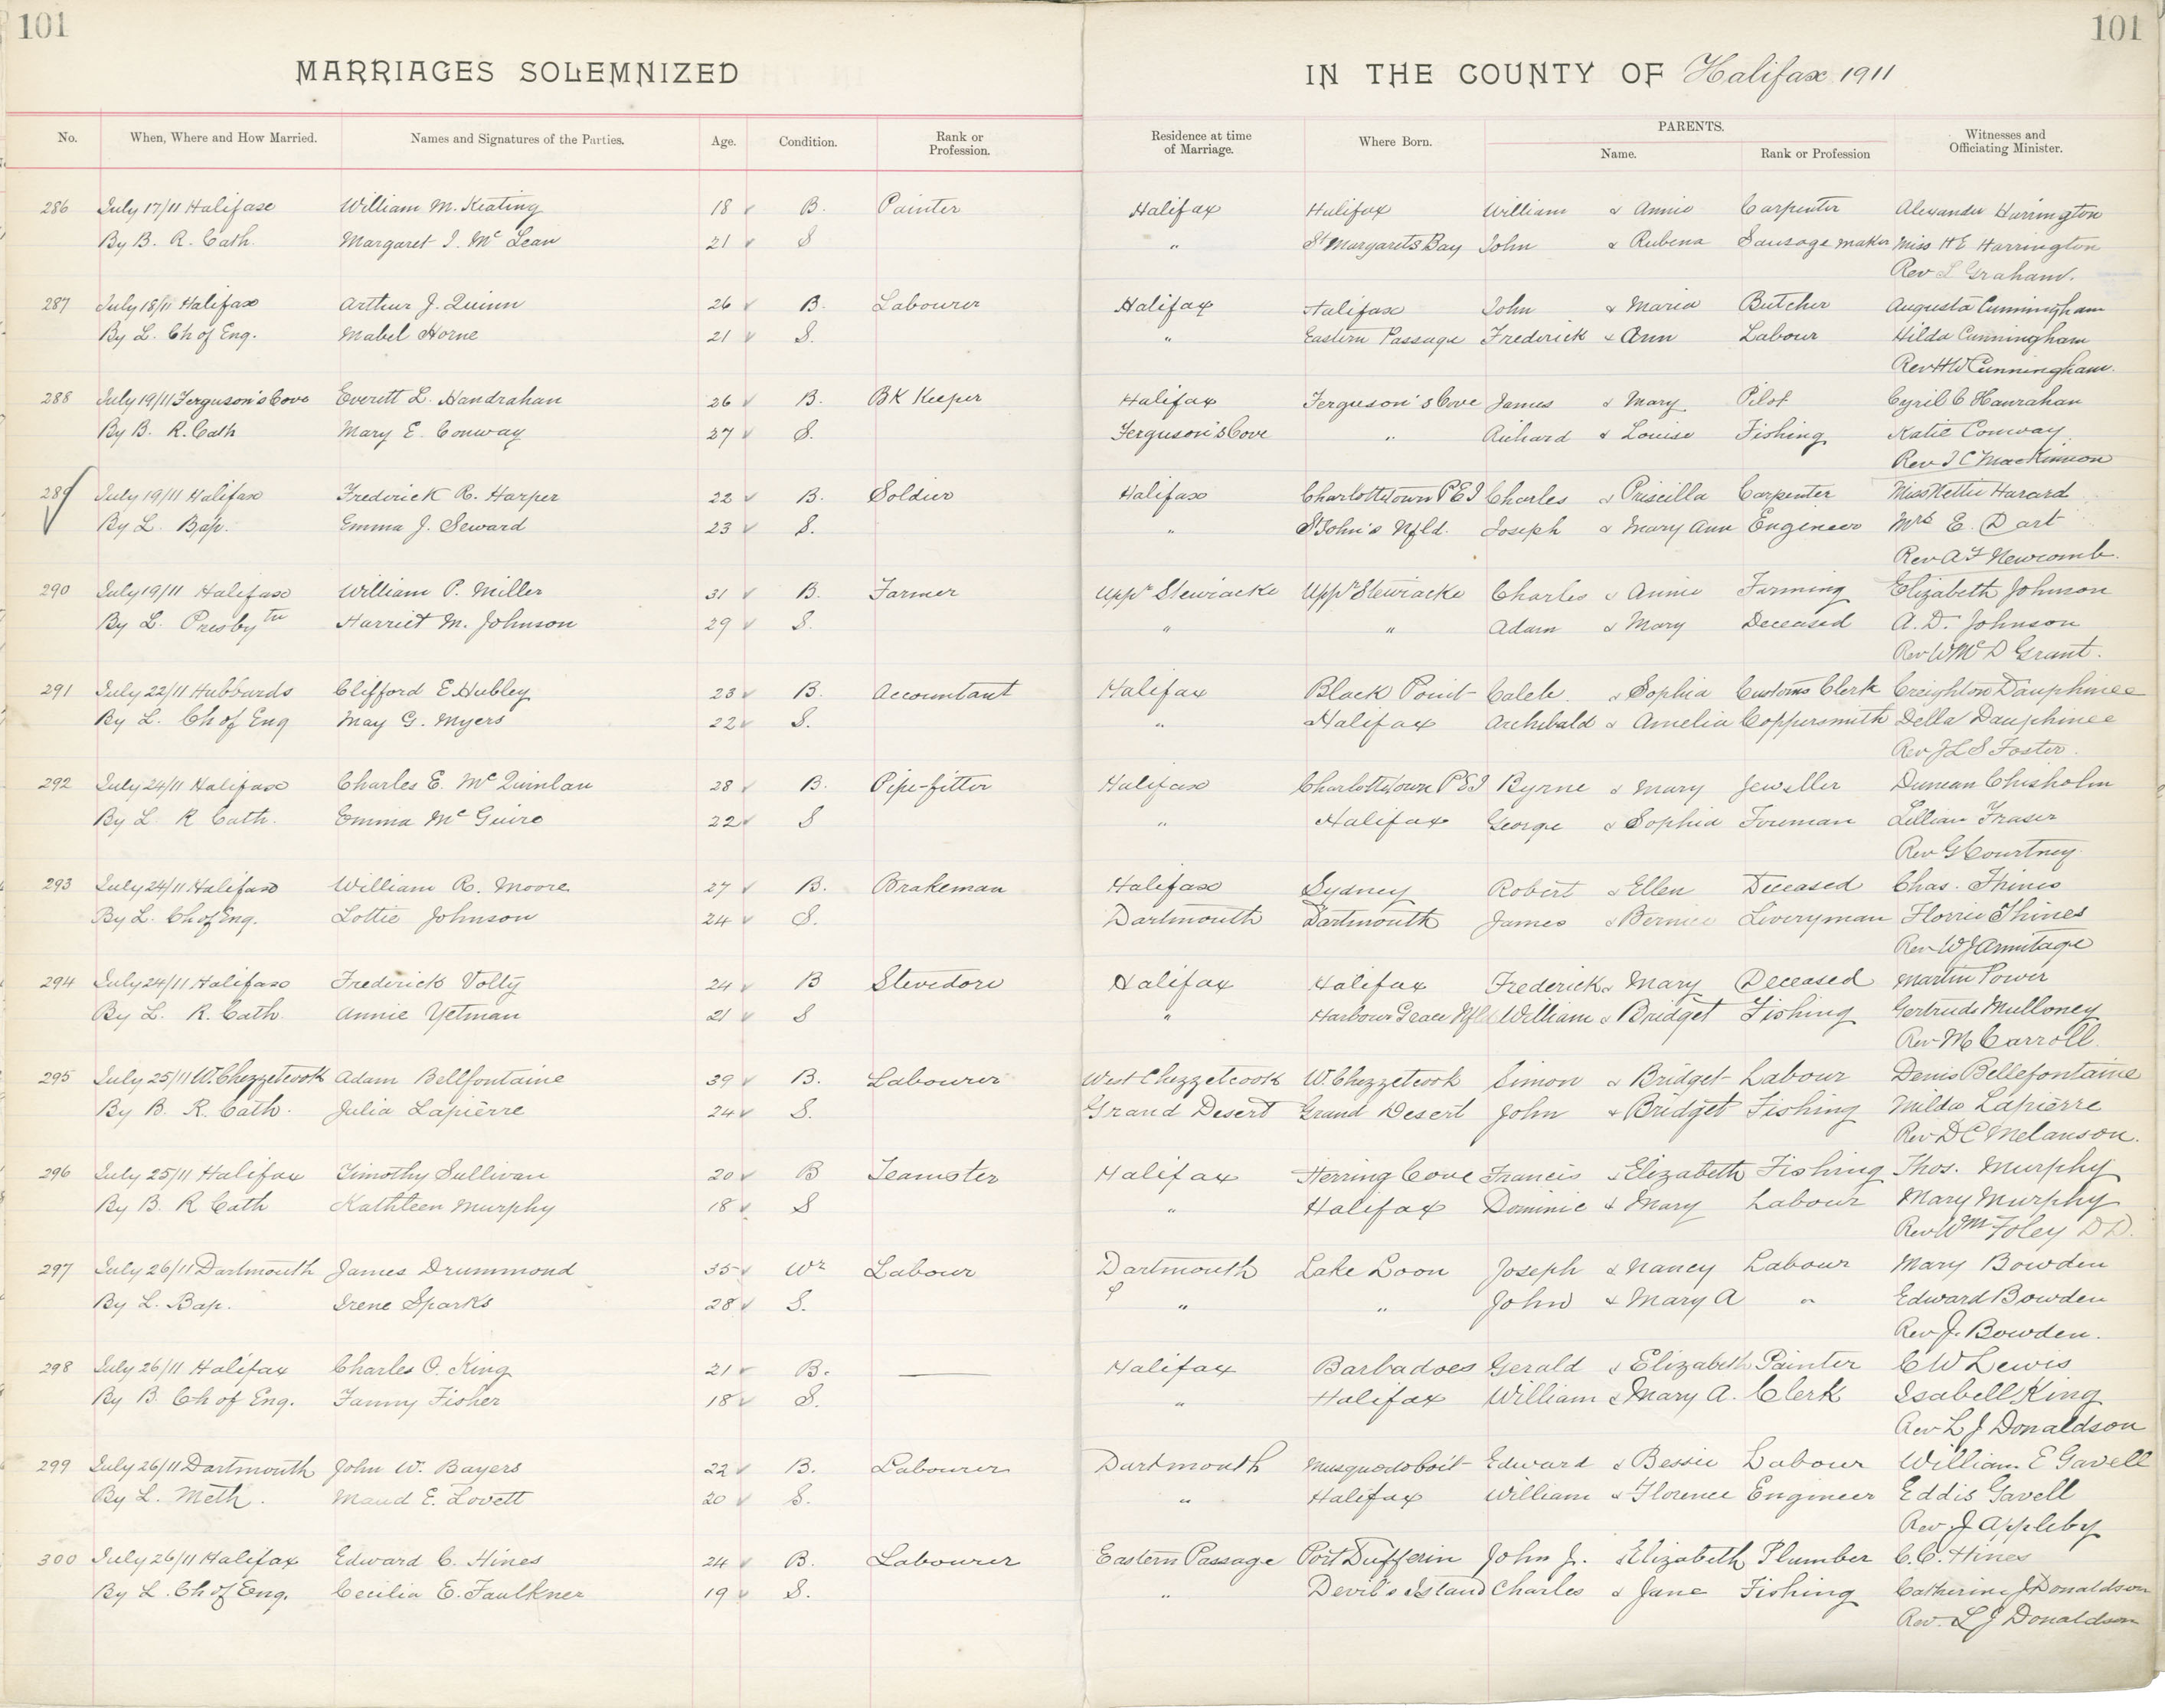 101 101
MARRIAGES SOLEMNIZED IN THE COUNTY OF Halifax 1911
No. When, Where and How Married. Names and Signatures of the Parties. Age. Condition. Rank or Profession. Residence at time of Marriage. Where Born. PARENTS. Name. Rank or Profession Witnesses and Officiating Minister.
286 July 17/11 Halifax William M. Keating 18 B. Painter Halifax Halifax William & Annie Carpenter Alexander Harrington
By B. R. Cath. Margaret I. Mc Lean 21 S " St Margarets Bay John & Rubena Sausage maker Miss H E Harrington
Rev L Graham.
287 July 18/11 Halifax Arthur J. Quinn 26 B. Labourer Halifax Halifax John & Maria Butcher Augusta Cunningham
By L. Ch of Eng. Mabel Horne 21 S. " Eastern Passage Frederick & Ann Labour Hilda Cunningham
Rev H W Cunningham.
288 July 19/11 Ferguson's Cove Everett L. Handrahan 26 B. BK Keeper Halifax Ferguson's Cove James & Mary Pilot Cyril C Hanrahan
By B. R. Cath Mary E. Conway 27 S. Ferguson's Cove " Richard & Louise Fishing Katie Conway
Rev I C MacKinnon
289 July 19/11 Halifax Frederick R. Harper 22 B. Soldier Halifax Charlottetown P E I Charles & Priscilla Carpenter Miss Nettie Harard
By L. Bap. Emma J. Seward 23 S. " St John's Nfld. Joseph & Mary Ann Engineer Mrs E. Dart
Rev A F Newcomb.
290 July 19/11 Halifax William P. Miller 31 B. Farmer Uppr Stewiacke Uppr Stewiacke Charles & Annie Farming Elizabeth Johnson
By L. Presbytn Harriet M. Johnson 29 S. " " Adam & Mary Deceased A. D. Johnson
Rev W Mc D Grant.
291 July 22/11 Hubbards Clifford E. Hubley 23 B. Accountant Halifax Black Point Caleb. & Sophia Customs Clerk Creighton Dauphinee
By L. Ch of Eng May G. Myers 22 S. " Halifax Archibald & Amelia Coppersmith Della Dauphinee
Rev J L S Foster.
292 July 24/11 Halifax Charles E. Mc Quinlan 28 B. Pipe-fitter Halifax Charlottetown P E I Byrne & Mary Jeweller Duncan Chisholm
By L R Cath. Emma Mc Guire 22 S " Halifax George & Sophia Foreman Lillian Fraser
Rev G Courtney
293 July 24/11 Halifax William R. Moore 27 B. Brakeman Halifax Sydney Robert & Ellen Deceased Chas. Thines
By L. Ch of Eng. Lottie Johnson 24 S. Dartmouth Dartmouth James & Bernice Liveryman Florrie Thines
Rev W J Armitage
294 July 24/11 Halifax Frederick Volty 24 B Stevedore Halifax Halifax Frederick & Mary Deceased Martin Power
By L. R. Cath. Annie Yetman 21 S " Harbour Grace Nfld William & Bridget Fishing Gertrude Mulloney
Rev M Carroll.
295 July 25/11 W. Chezzetcook Adam Bellfontaine 39 B. Labourer West Chezzetcook W. Chezzetcook Simon & Bridget Labour Denis Bellefontaine
By B R. Cath. Julia Lapierre 24 S. Grand Desert Grand Desert John & Bridget Fishing Milda Lapierre
Rev D C Melanson.
296 July 25/11 Halifax Timothy Sullivan 20 B Teamster Halifax Herring Cove Francis & Elizabeth Fishing Thos. Murphy
By B. R Cath Kathleen Murphy 18 S " Halifax Dominic & Mary Labour Mary Murphy
Rev Wm Foley D D.
297 July 26/11 Dartmouth James Drummond 35 Wr Labour Dartmouth Lake Loon Joseph & Nancy Labour Mary Bowden
By L. Bap. Irene Sparks 28 S. " " John & Mary A " Edward Bowden
Rev J. Bowden.
298 July 26/11 Halifax Charles O. King 21 B. — Halifax Barbadoes Gerald & Elizabeth Painter C W Lewis
By B. Ch of Eng. Fanny Fisher 18 S. " Halifax William & Mary A. Clerk Isabell King
Rev L J Donaldson
299 July 26/11 Dartmouth John W. Bayers 22 B. Labourer Dartmouth Musquodoboit Edward & Bessie Labour William E Gavell
By L. Meth. Maud E. Lovett 20 S. " Halifax William & Florence Engineer Eddis Gavell
Rev J Appleby
300 July 26/11 Halifax Edward C. Hines 24 B. Labourer Eastern Passage Port Dufferin John J. & Elizabeth Plumber C. C. Hines
By L. Ch of Eng. Cecilia E. Faulkner 19 S. " Devil's Island Charles & Jane Fishing Catherine J Donaldson
Rev. L J Donaldson